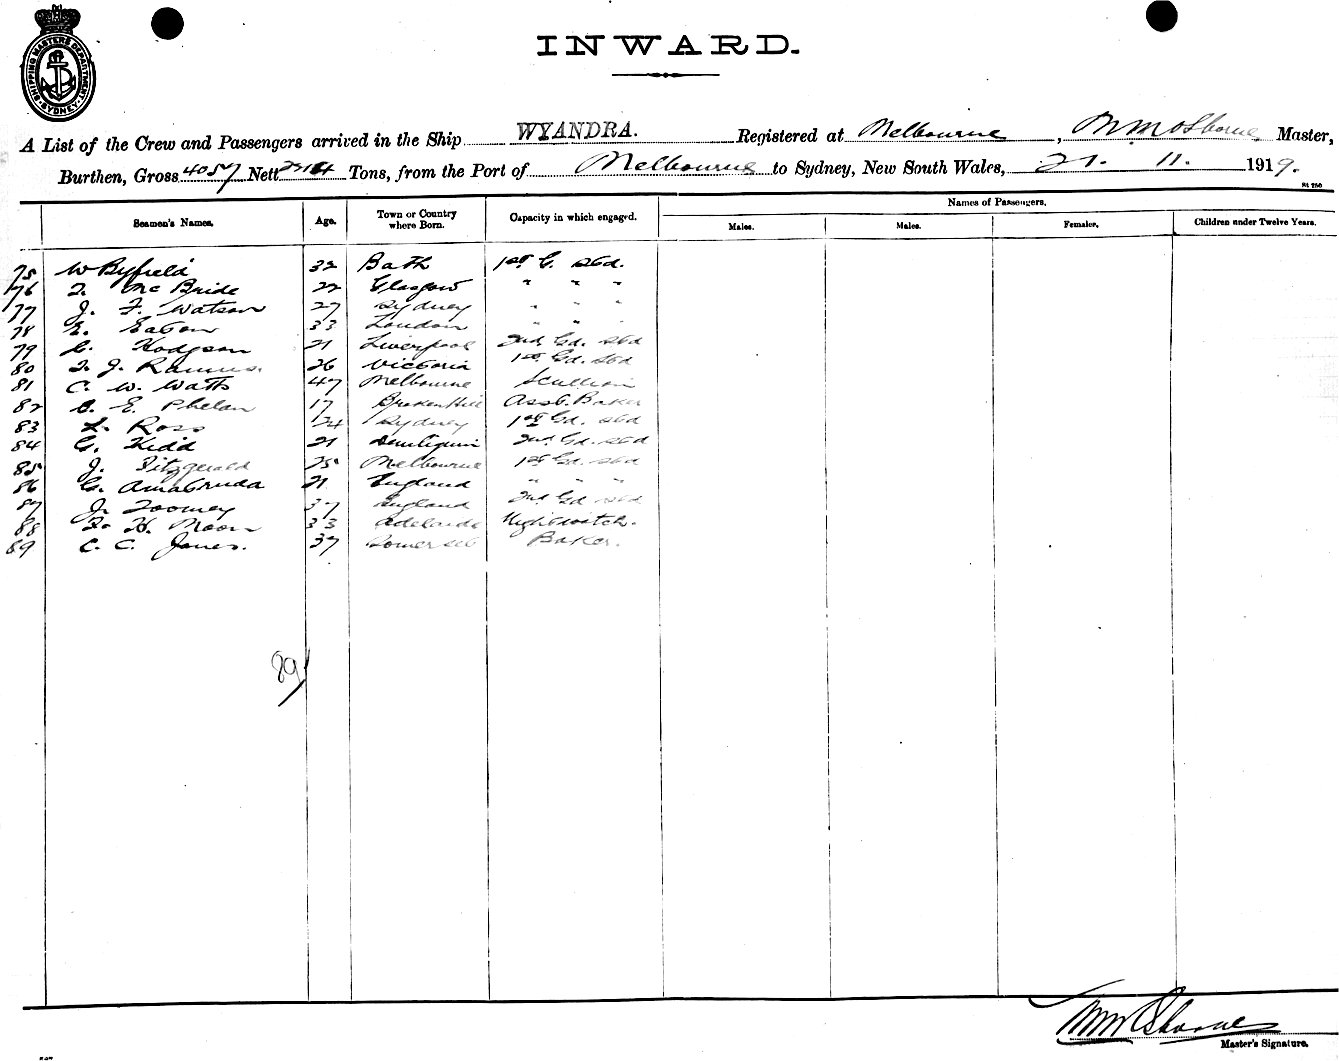 SHIPPING MASTERS DEPARTMENT SYDNEY
INWARD.
A List of the Crew and Passengers arrived in the Ship WYANDRA. Registered at Melbourne, Osborne Master,
Burthen, Gross 4057 Nett Tons, from the Port of Melbourne to Sydney, New South Wales, 21. 11. 1919.
Seamen's Names. Age. Town or Country where Born. Capacity in which engaged. Names of Passengers.
Males. Males. Females. Children under Twelve Years.
75 W Byfield 32 Bath 1st G. Std.
76 Mc Bride 22 Glasgow " " "
77 J. F. Watson 27 Sydney " " "
78 E. Eaton 33 London " " "
79 Hodgson 21 Liverpool 2nd Gd. Std
80 J. 26 Victoria 1st Gd. Std
81 C. W. Watts 47 Melbourne Scullion
82 E. Phelan 17 Broken Hill Asst. Baker
83 Ross 24 Sydney 1st Gd. Std
84 G. Kidd 21 Deniliquin 2nd Gd. Std
85 J. Fitzgerald 25 Melbourne 1st Gd. Std
86 G. Amatruda 21 England " " "
87 J. Toomey 37 England 2nd Gd Std
88 H. Moon 33 Adelaide Nightwatch.
89 C. C. Jones. 37 Somerset Baker.
89
Osborne
Master's Signature.